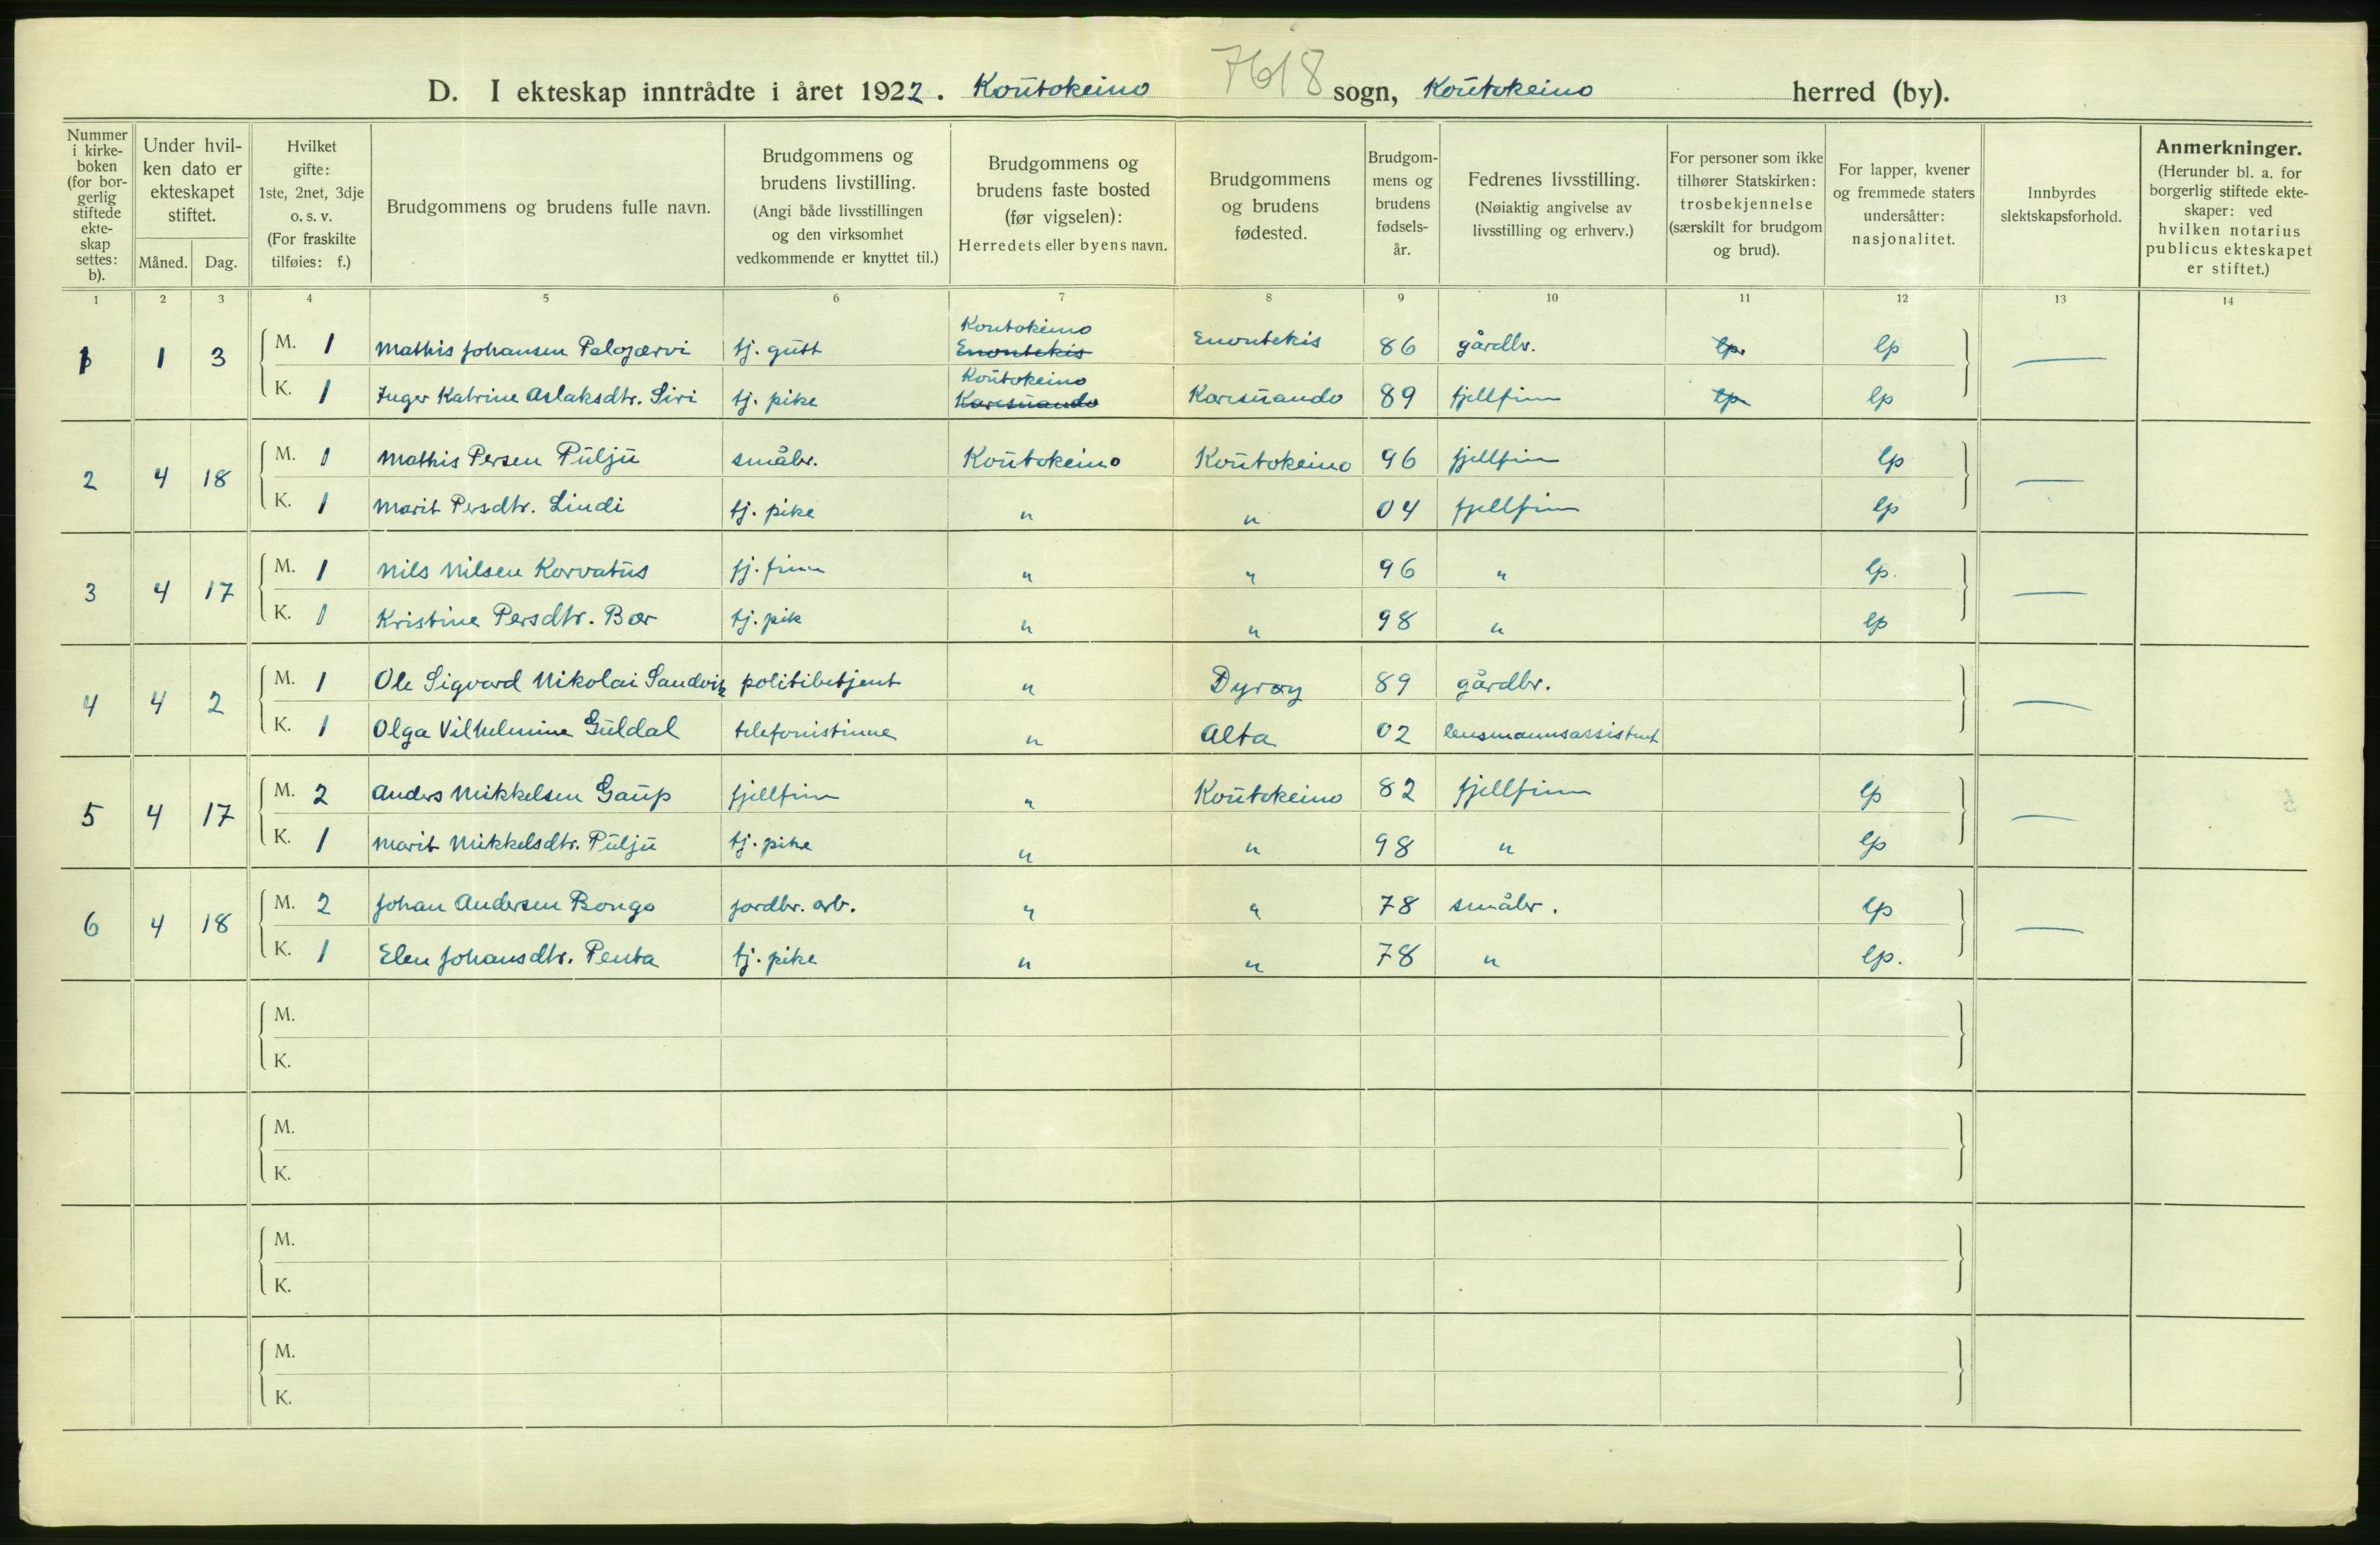 7618
D. I ekteskap inntrådte i året 1922. Koutokeino sogn, Koutokeino herred (by).
Nummer i kirke-boken (for bor-gerlig stiftede ekte-skap settes: b).
Under hvil-ken dato er ekteskapet stiftet.
Måned. Dag.
Hvilket gifte: 1ste, 2net, 3dje o. s. v. (For fraskilte tilføies: f.)
Brudgommens og brudens fulle navn.
Brudgommens og brudens livstilling. (Angi både livsstillingen og den virksomhet vedkommende er knyttet til.)
Brudgommens og brudens faste bosted (før vigselen): Herredets eller byens navn.
Brudgommens og brudens fødested.
Brudgom-mens og brudens fødsels-år.
Fedrenes livsstilling. (Nøiaktig angivelse av livsstilling og erhverv.)
For personer som ikke tilhører Statskirken: trosbekjennelse (særskilt for brudgom og brud).
For lapper, kvener og fremmede staters undersåtter: nasjonalitet.
Innbyrdes slektskapsforhold.
Anmerkninger. (Herunder bl. a. for borgerlig stiftede ekte-skaper: ved hvilken notarius publicus ekteskapet er stiftet.)
1 2 3 4 5 6 7 8 9 10 11 12 13 14
1 1 3 M. 1 Mathis Johansen Palojærvi tj. gutt Koutokeino Enontekis Enontekis 86 gårdbr. lp. lp —
K. 1 Inger Katrine Aslaksdtr. Siri tj. pike Koutokeino Karesuando Karesuando 89 fjellfinn lp lp
2 4 18 M. 1 Mathis Persen Pulju småbr. Koutokeino Koutokeino 96 fjellfinn lp —
K. 1 Marit Persdtr. Lindi tj. pike " " 04 fjellfinn lp
3 4 17 M. 1 Nils Nilsen Korvatus fj. finn " " 96 " lp. —
K. 1 Kristine Persdtr. Bær tj. pik " " 98 " lp
4 4 2 M. 1 Ole Sigvard Nikolai Sandvik politibetjent " Dyrøy 89 gårdbr. —
K. 1 Olga Vilhelmine Guldal telefonistinne " Alta 02 lensmannsassistent
5 4 17 M. 2 Anders Mikkelsen Gaup fjellfinn " Koutokeino 82 fjellfinn lp —
K. 1 Marit Mikkelsdtr. Pulju tj. pike " " 98 " lp
6 4 18 M. 2 Johan Andersen Bongo jordbr. arb. " " 78 småbr. lp —
K. 1 Elen Johansdtr. Penta tj. pike " " 78 " lp.
M.
K.
M.
K.
M.
K.
M.
K.